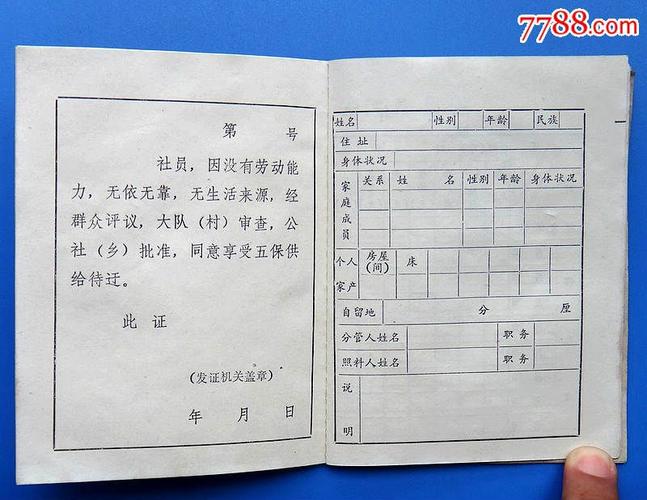 7788.com
第 号
社员，因没有劳动能
力，无依无靠，无生活来源，经
群众评议，大队（村）审查，公
社（乡）批准，同意享受五保供
给待迂。
此 证
（发证机关盖章）
年 月 日
姓名 性别 年龄 民族
住 址
身体状况
家庭成员 关系 姓 名 性别 年龄 身体状况
个人家产 房屋（间） 床
自留地 分 厘
分管人姓名 职务
照料人姓名 职务
说 明